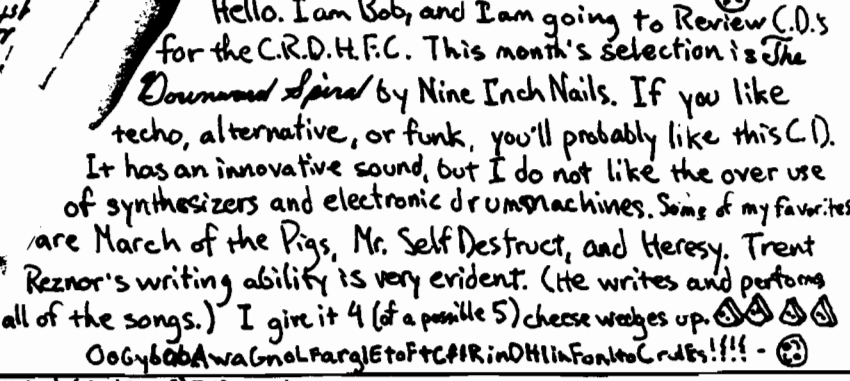 Hello. I am Bob, and I am going to Review C.D.s
for the C.R.D.H.F.C. This month's selection is The
Downward Spiral by Nine Inch Nails. If you like
techo, alternative, or funk, you'll probably like this C.D.
It has an innovative sound, but I do not like the over use
of synthesizers and electronic drummachines. Some of my favorites
are March of the Pigs, Mr. Self Destruct, and Heresy. Trent
Reznor's writing ability is very evident. (He writes and performs
all of the songs.) I give it 4 (of a possible 5) cheese wedges up.